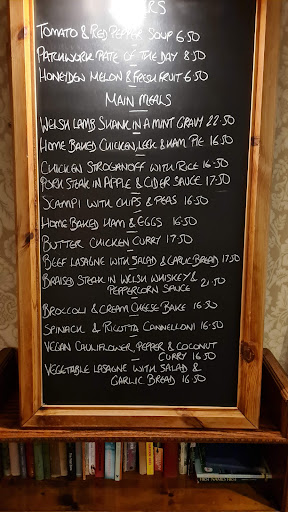 ERS
TOMATO & RED PEPPER SOUP 6·50
PATCHWORK PATE OF THE DAY 8·50
HONEYDEW MELON & FRESH FRUIT 6·50
MAIN MEALS
WELSH LAMB SHANK IN A MINT GRAVY 22·50
HOME BAKED CHICKEN, LEEK & HAM PIE 16·50
CHICKEN STROGANOFF WITH RICE 16·50
PORK STEAK IN APPLE & CIDER SAUCE 17·50
SCAMPI WITH CHIPS & PEAS 16·50
HOME BAKED HAM & EGGS 16·50
BUTTER CHICKEN CURRY 17·50
BEEF LASAGNE WITH SALAD & GARLIC BREAD 17·50
BRAISED STEAK IN WELSH WHISKEY &
PEPPERCORN SAUCE 21·50
BROCCOLI & CREAM CHEESE BAKE 16·50
SPINACH & RICOTTA CANNELLONI 16·50
VEGAN CAULIFLOWER, PEPPER & COCONUT
CURRY 16·50
VEGETABLE LASAGNE WITH SALAD &
GARLIC BREAD 16·50